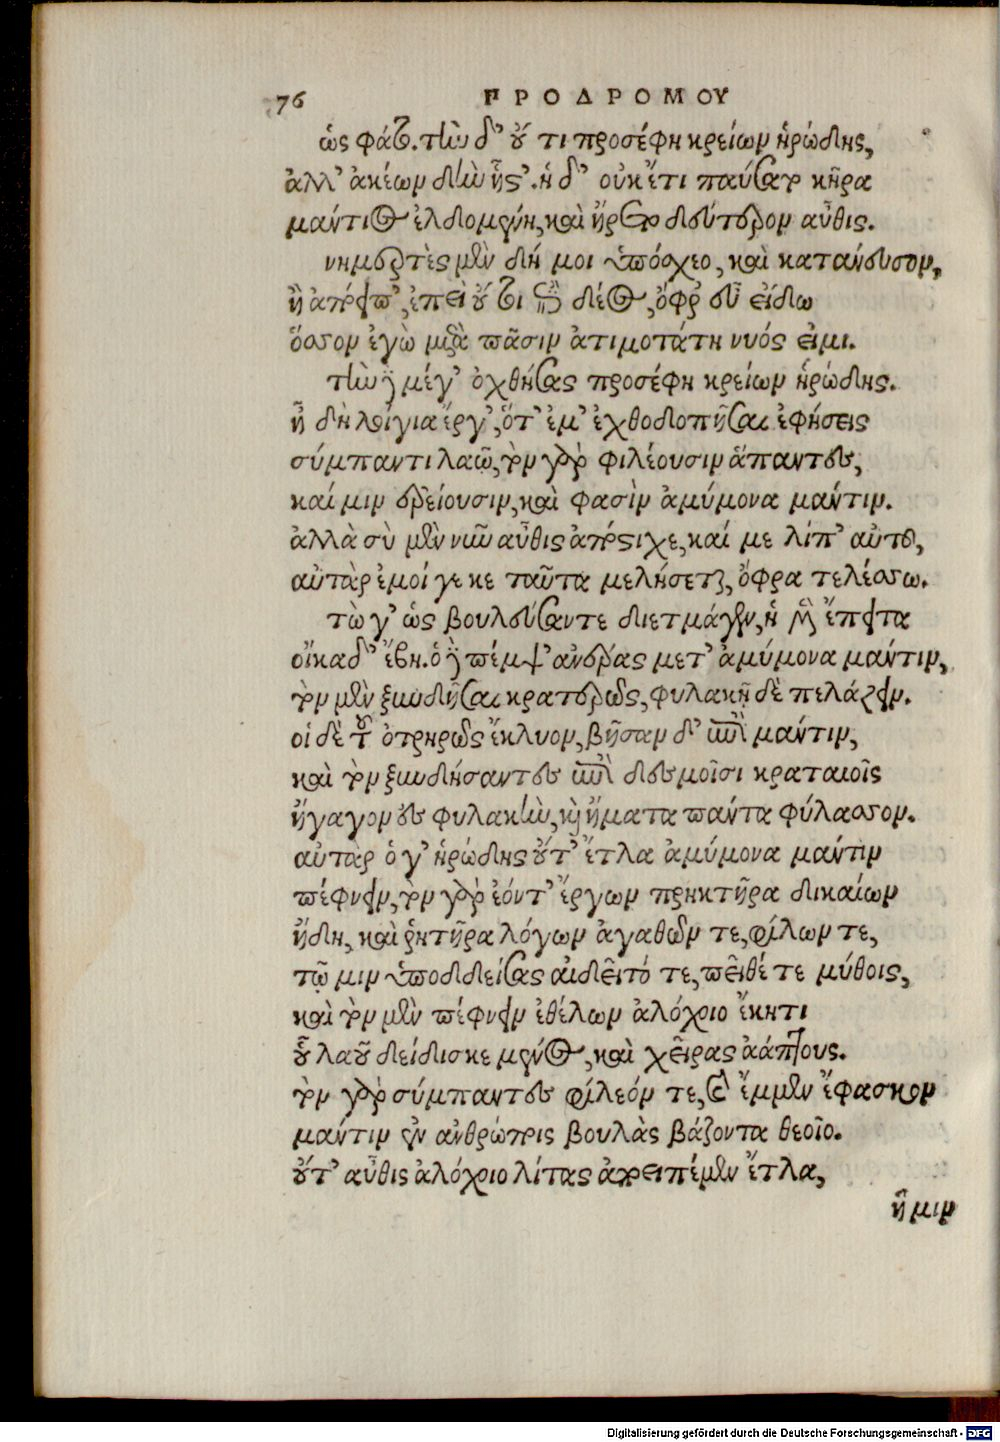 76 ΠΡΟΔΡΟΜΟΥ
ὣς φάτο. τὴν δ' οὔ τι προσέφη κρείων ἡρώδης,
ἀλλ' ἀκέων δὴν ἧς'. ἡ δ' οὐκ ἔτι παύσατο κῆρα
μάντιος ἐλδομένη, καὶ ἤρετο δεύτερον αὖθις.
νημερτὲς μὲν δή μοι ὑπόσχεο, καὶ κατάνευσον,
ἢ ἀπόειπ', ἐπεὶ οὔ τοι ἔπι δέος, ὄφρ' εὖ εἰδέω
ὅσσον ἐγὼ μετὰ πᾶσιν ἀτιμοτάτη νυός εἰμι.
τὴν δὲ μέγ' ὀχθήσας προσέφη κρείων ἡρώδης.
ἦ δὴ λοίγια ἔργ', ὅτ' ἐμ' ἐχθοδοπῆσαι ἐφήσεις
σύμπαντι λαῷ, τὸν γὰρ φιλέουσιν ἅπαντες,
καί μιν τρείουσιν, καὶ φασὶν ἀμύμονα μάντιν.
ἀλλὰ σὺ μὲν νῦν αὖθις ἀπόστιχε, καί με λίπ' αὐτοῦ,
αὐτὰρ ἐμοί γε κε ταῦτα μελήσεται, ὄφρα τελέσσω.
τὼ γ' ὣς βουλεύσαντε διετμάγεν, ἡ μὲν ἔπειτα
οἴκαδ' ἔβη. ὁ δὲ πέμψ' ἄνδρας μετ' ἀμύμονα μάντιν,
τὸν μὲν ξυνδῆσαι κρατερῶς, φυλακῇ δὲ πελάζειν.
οἱ δὲ τοῦ ὀτρηρῶς ἔκλυον, βῆσαν δ' ἐπὶ μάντιν,
καὶ τὸν ξυνδήσαντες ἐπὶ δεσμοῖσι κραταιοῖς
ἤγαγον ἐς φυλακὴν, καὶ ἤματα πάντα φύλασσον.
αὐτὰρ ὁ γ' ἡρώδης οὔτ' ἔτλα ἀμύμονα μάντιν
πέφνειν, τὸν γὰρ ἐόντ' ἔργων πρηκτῆρα δικαίων
ᾔδη, καὶ ῥητῆρα λόγων ἀγαθῶν τε, φίλων τε,
τῷ μιν ὑποδδείσας αἰδεῖτό τε, πεῖθέ τε μύθοις,
καὶ τὸν μὲν πέφνειν ἐθέλων ἀλόχοιο ἕκητι
οὗ λαοῦ δείδισκε μένος, καὶ χεῖρας ἀάπτους.
τὸν γὰρ σύμπαντες φίλεόν τε, καὶ ἔμμεν ἔφασκον
μάντιν ἐν ἀνθρώποις βουλὰς βάζοντα θεοῖο.
οὔτ' αὖθις ἀλόχοιο λίτας ἀποειπέμεν ἔτλα,
ἥ μιν
Digitalisierung gefördert durch die Deutsche Forschungsgemeinschaft - DFG